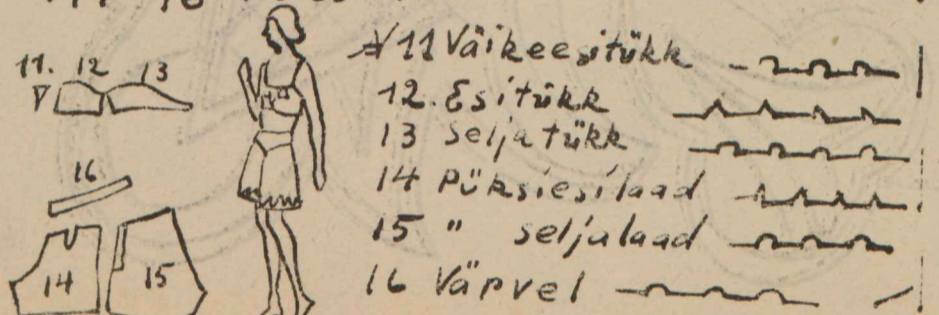 11. 12 13
16
14 15
11 Väikeesitükk
12. Esitükk
13 Seljatükk
14 Püksiesilaad
15 " seljalaad
16 Värvel